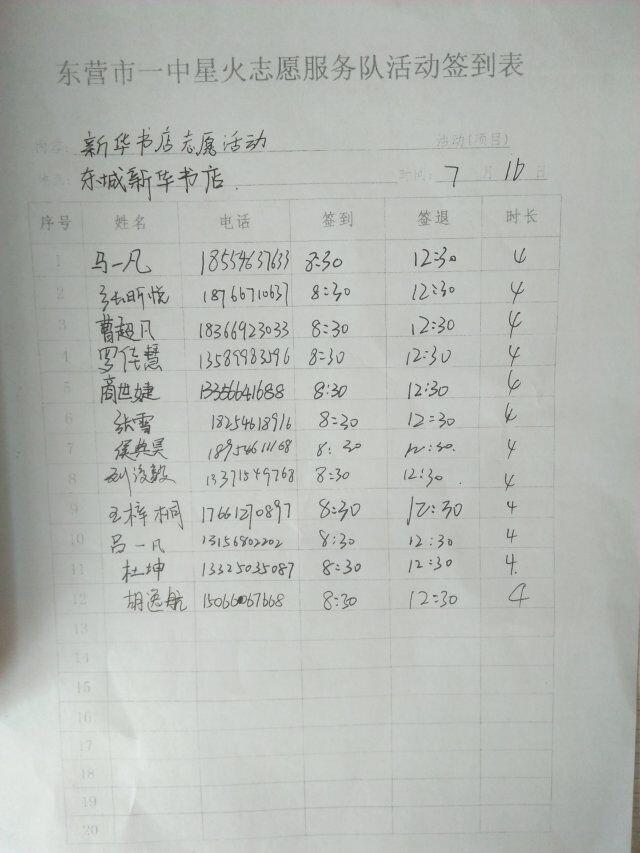 东营市一中星火志愿服务队活动签到表
内容：新华书店志愿活动 活动(项目)
地点：东城新华书店. 时间：7月16日
序号 姓名 电话 签到 签退 时长
1 马一凡 18554637633 8:30 12:30 4
2 张昕悦 18766710637 8:30 12:30 4
3 曹超凡 18366923033 8:30 12:30 4
4 罗佳慧 13589983596 8:30 12:30 4
5 商世婕 13356641688 8:30 12:30 4
6 张雪 18254618916 8:30 12:30 4
7 侯典昊 18954611168 8:30 12:30. 4
8 刘浚毅 13371549768 8:30 12:30. 4
9 王梓桐 17661290897 8:30 12:30 4
10 吕一凡 13156802202 8:30 12:30 4
11 杜坤 13325035087 8:30 12:30 4.
12 胡逸航 15066067668 8:30 12:30 4
13
14
15
16
17
18
19
20